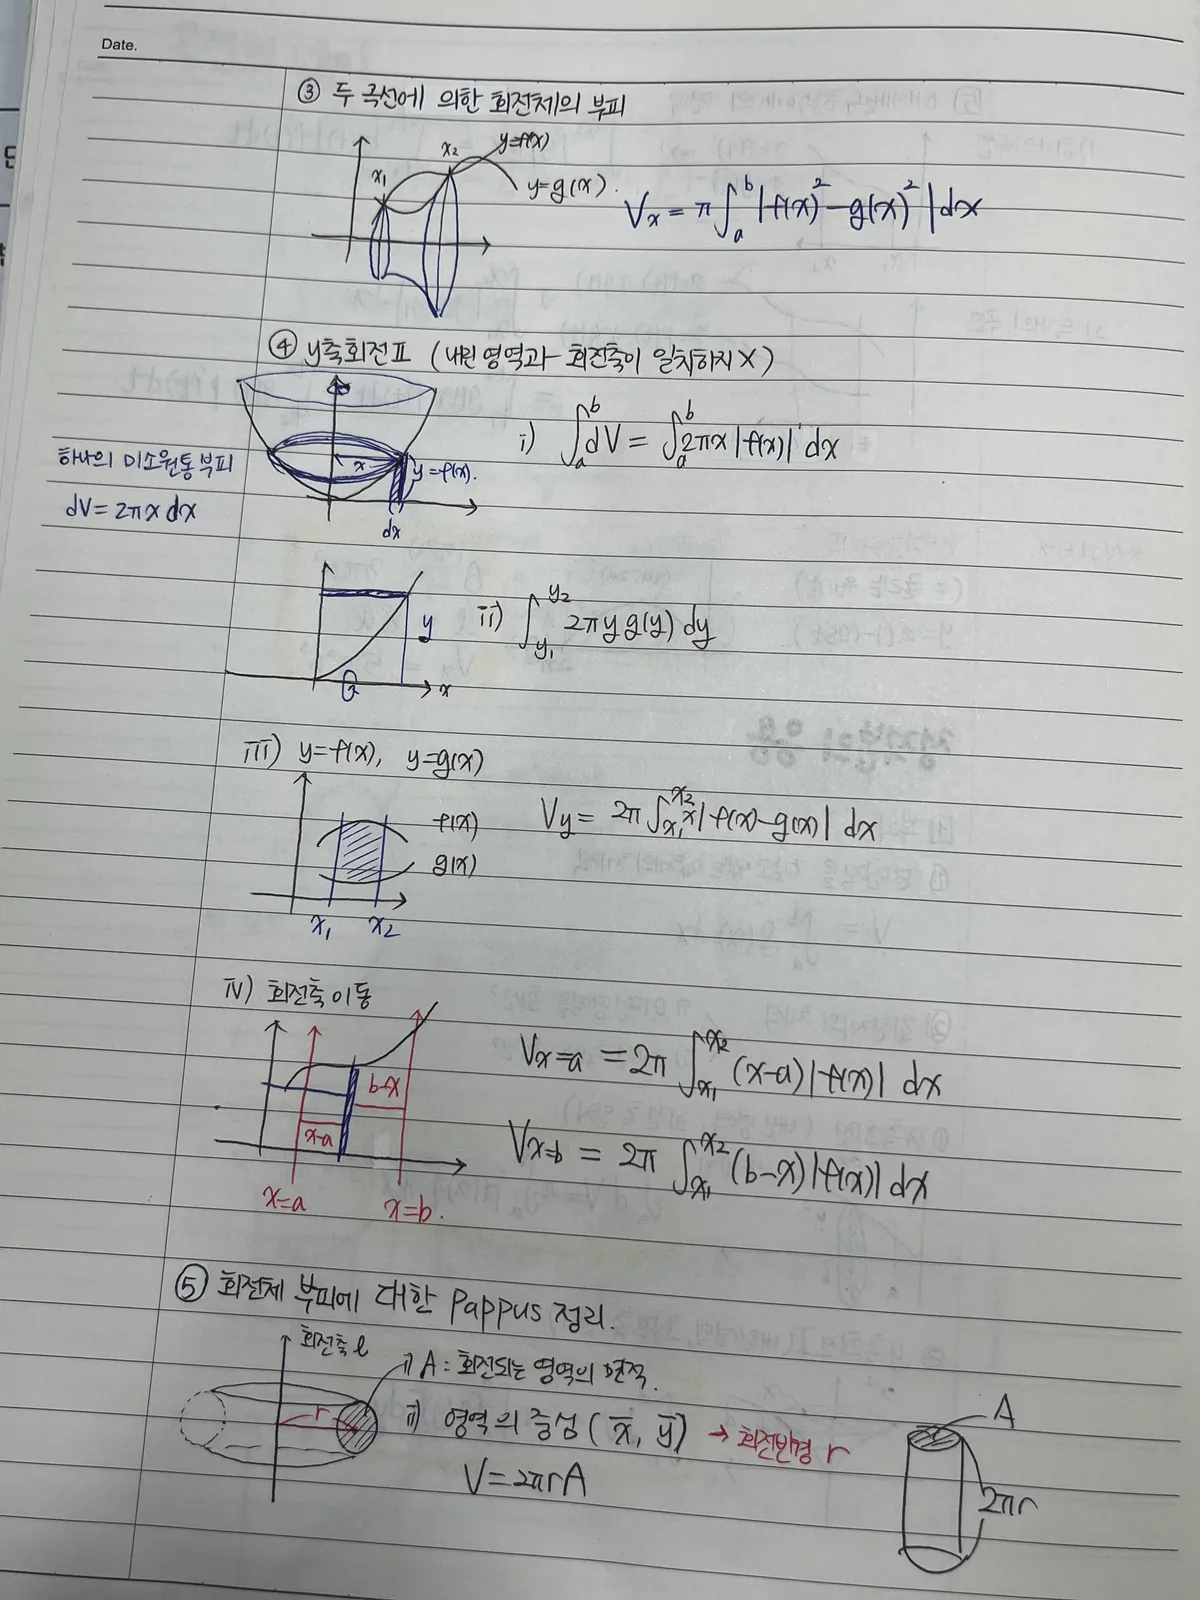 Date.
③ 두 곡선에 의한 회전체의 부피
x₁
x₂
y=f(x)
y=g(x).
Vx = π∫ₐᵇ |f(x)²-g(x)²|dx
④ y축회전Ⅱ (내린 영역과 회전축이 일치하지 X)
x
y=f(x).
dx
하나의 미소원통부피
dV=2πx dx
i) ∫ₐᵇ dV = ∫ₐᵇ 2πx|f(x)| dx
y
x
ii) ∫_{y₁}^{y₂} 2πy g(y) dy
iii) y=f(x), y=g(x)
f(x)
g(x)
x₁ x₂
Vy = 2π∫_{x₁}^{x₂} x|f(x)-g(x)| dx
iv) 회전축 이동
b-x
x-a
x=a
x=b.
Vx=a = 2π ∫_{x₁}^{x₂} (x-a)|f(x)| dx
Vx=b = 2π ∫_{x₁}^{x₂} (b-x)|f(x)| dx
⑤ 회전체 부피에 대한 Pappus 정리.
회전축 l
r
i) A : 회전되는 영역의 면적.
ii) 영역의 중심 (x̄, ȳ) → 회전반경 r
V=2πrA
A
2πr